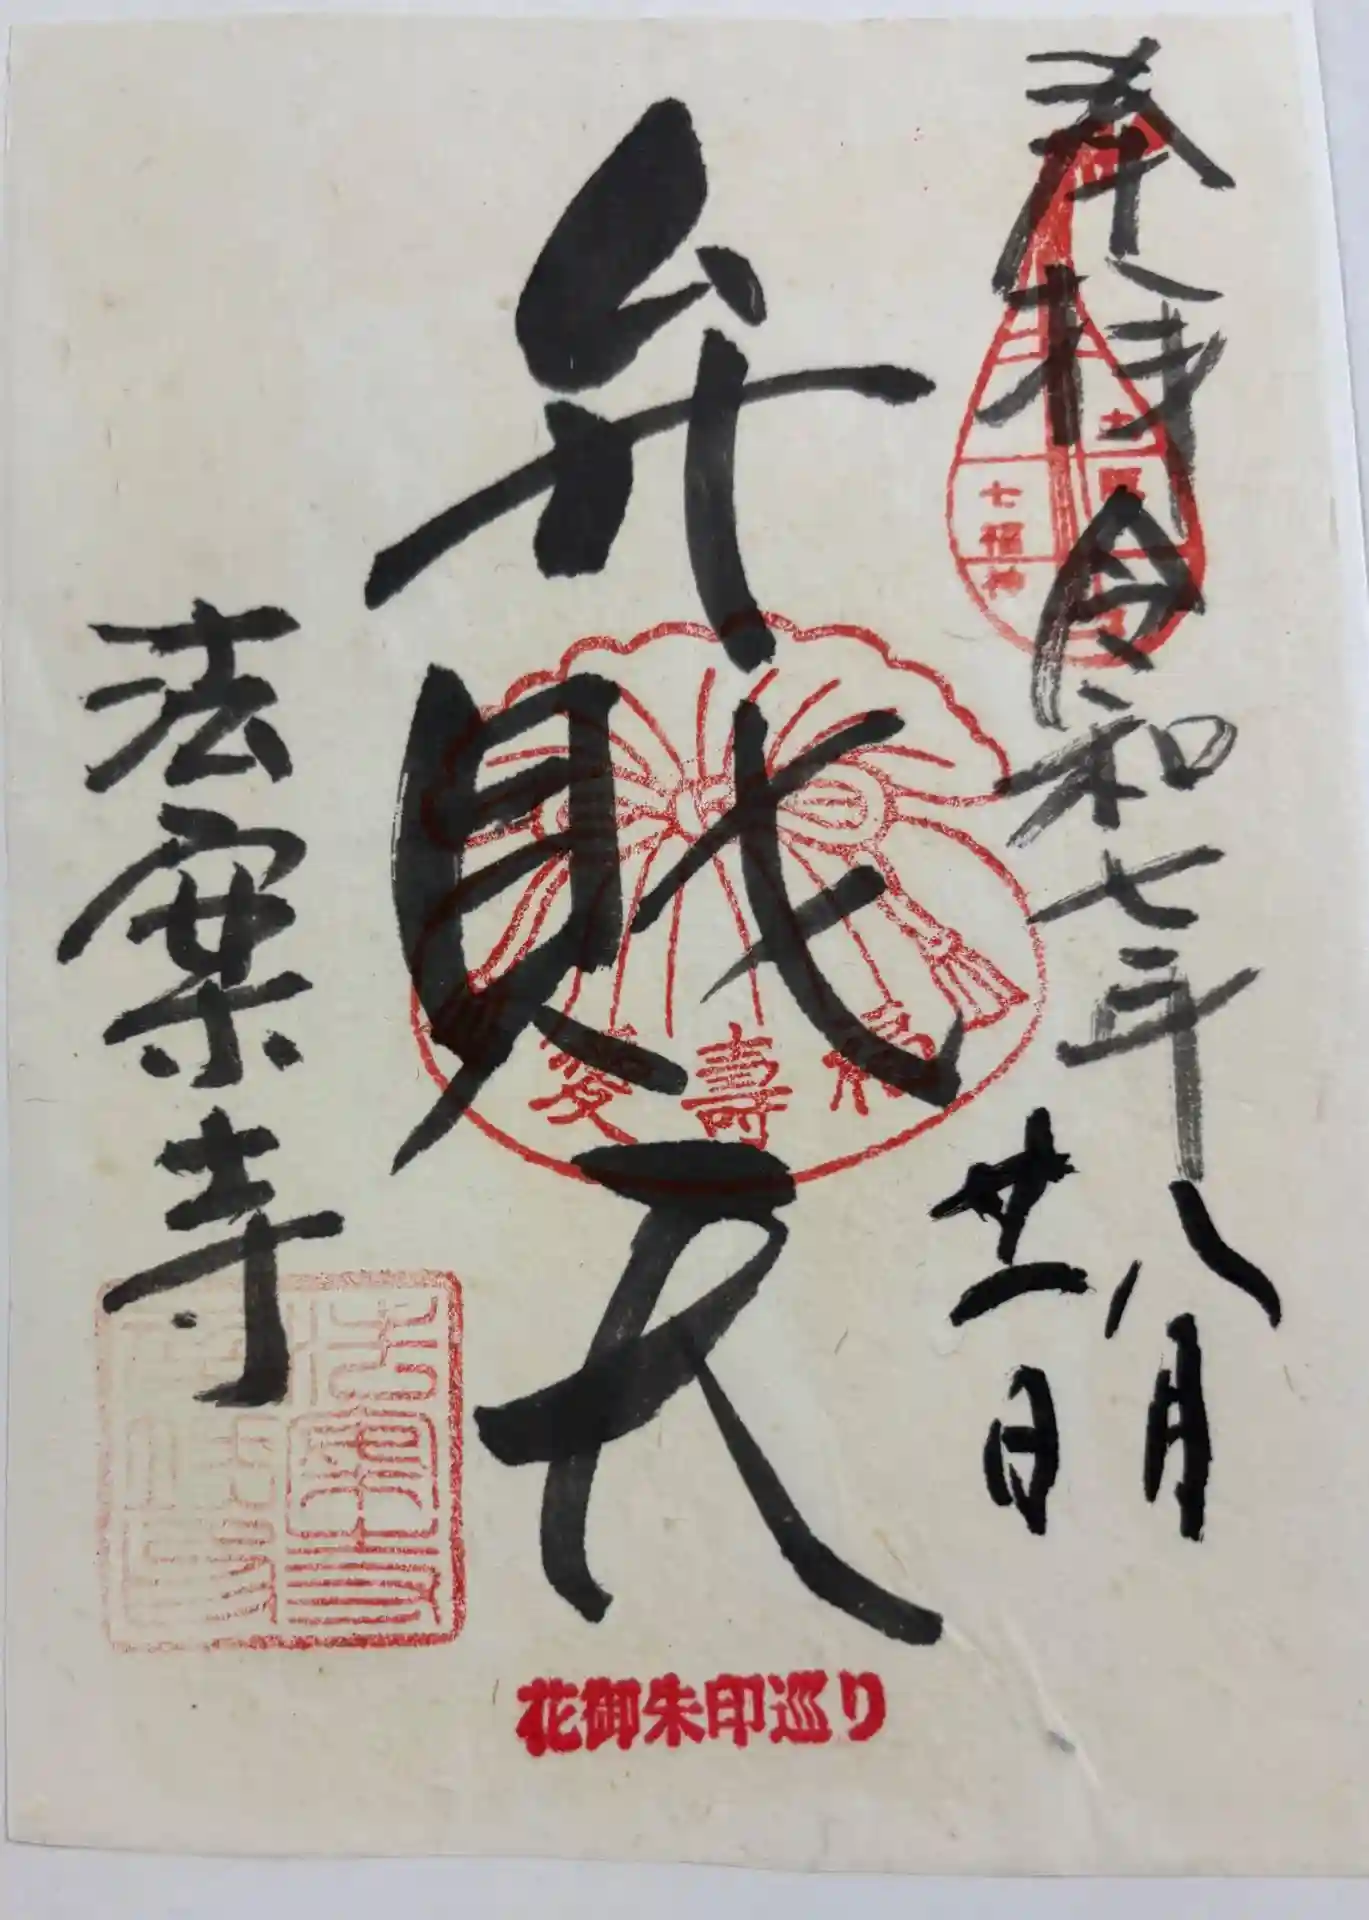 奉拝 令和七年八月
廿一日
大阪
七福神
弁財天
福壽愛
法案寺
法案寺
花御朱印巡り